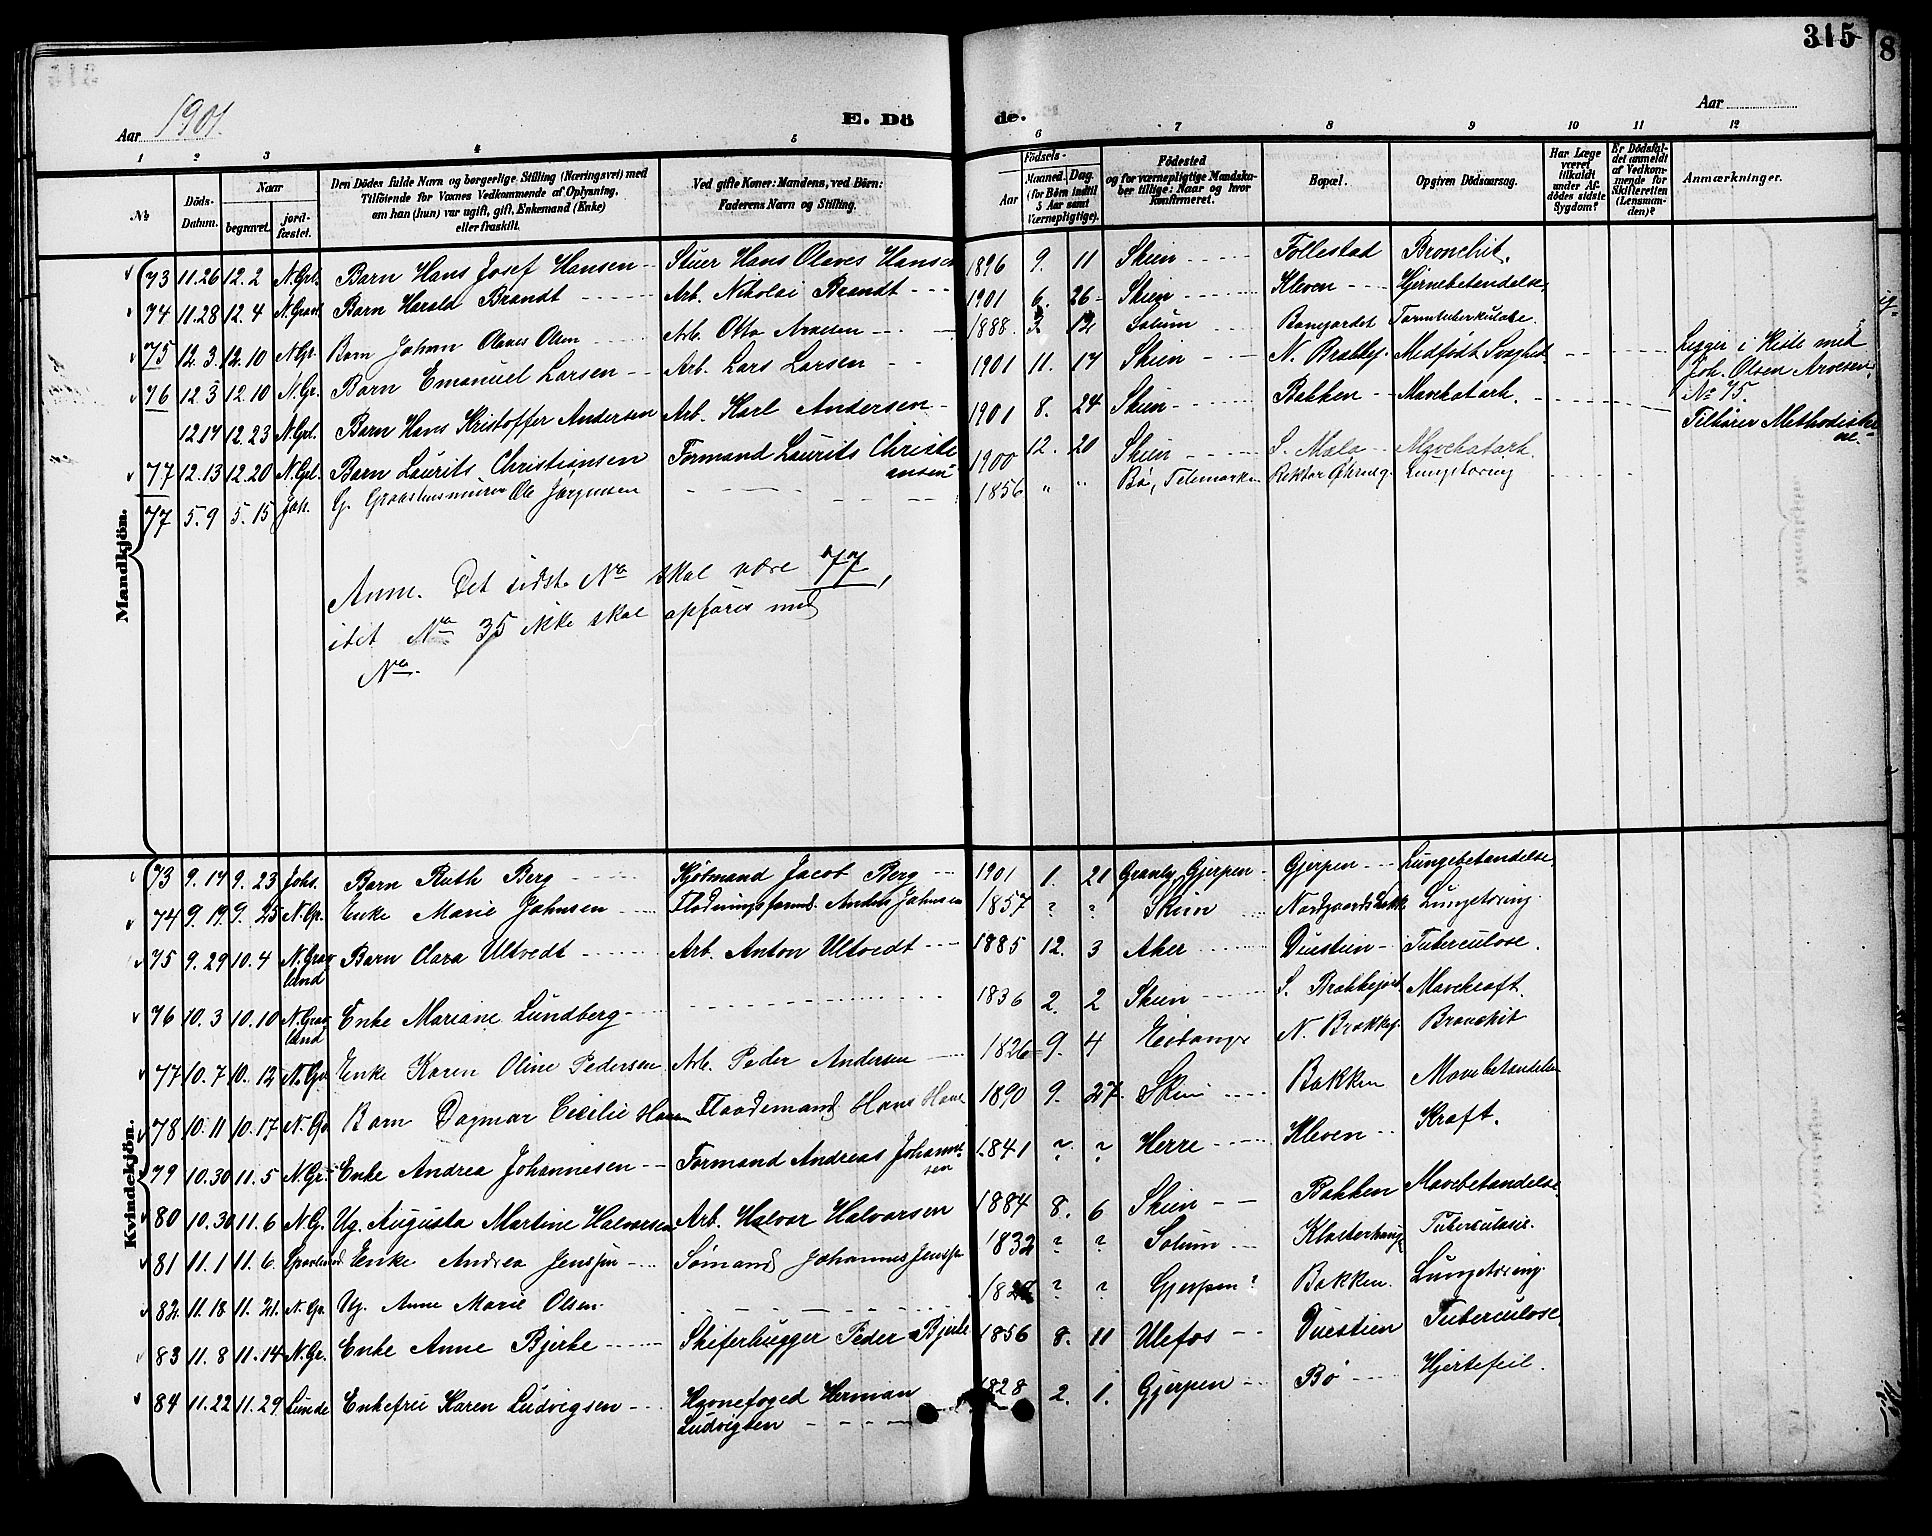 315
8
Aar 1901.
E. Dö de.
Aar
1 2 3 4 5 6 7 8 9 10 11 12
No
Döds-Datum.
Naar
begravet.
jord-fæstet.
Den Dödes fulde Navn og borgerlige Stilling (Næringsvei) med
Tilföiende for Voxnes Vedkommende af Oplysning,
om han (hun) var ugift, gift, Enkemand (Enke)
eller fraskilt.
Ved gifte Koner: Mandens, ved Börn:
Faderens Navn og Stilling.
Födsels-
Aar
Maaned. Dag.
(for Börn indtil
5 Aar samt
Værnepligtige).
Födested
og for værnepligtige Mandska-
ber tillige: Naar og hvor
Konfirmeret.
Bopæl.
Opgiven Dödsaarsag.
Har Læge
været
tilkaldt
under Af-
dödes sidste
Sygdom?
Er Dödsfal-
det anmeldt
af Vedkom-
mende for
Skifteretten
(Lensman-
den)?
Anmærkninger.
Mandkjön.
73 11.26 12.2 N.Grl. Barn Hans Josef Hansen Stuer Hans Olaves Hansen 1896 9. 11 Skien Follestad Bronchit.
74 11.28 12.4 N.Gravl. Barn Harald Brandt Arb. Nikolai Brandt 1901 6. 26 Skien Kleven Hjernebetændelse
75 12.3 12.10 N.Gr. Barn Johan Olaves Olsen Arb. Otto 1888 12 Solum Tarmtuberkulose.
76 12.3 12.10 N.Gr. Barn Emanuel Larsen Arb. Lars Larsen 1901 11. 17 Skien N. Brekkej. Medfødt Svaghed Ligger i Kiste med
Joh. Olsen Arvesen,
No 75.
12.17 12.23 N.Grl. Barn Hans Kristoffer Andersen Arb. Karl Andersen 1901 8. 24 Skien Bakken Mavekatarh.
77 12.13 12.20 N.Grl. Barn Laurits Christiansen Formand Laurits Christi
ansen 1900 12. 20 Skien S. Mæla Mavekatarh. Tilhører Methodistke
ne.
77 5.9 5.15 Joh. G. Graastensmurer Ole Jørgensen 1856 " " Bø, Telemarken Rektor Ørnsg. Lungetæring
Anm. Det sidste No skal være 77,
idet No 35 ikke skal opføres med
No.
Kvindekjön.
73 9.17 9.23 Johs. Barn Ruth Berg Kjøbmand Jacob Berg 1901 1. 21 Granly, Gjerpen Gjerpen Lungebetændelse
74 9.19 9.25 N.Gr. Enke Marie Johnsen Flødningsformd. Anders Johnsen 1857 ? ? Skien Lungetæring.
75 9.29 10.4 N.Grav
lund Barn Clara Ultvedt Arb. Anton Ultvedt 1885 12. 3 Aker Duestien Tuberculose.
76 10.3 10.10 N.Grav
lund Enke Mariane Lundberg 1836 2. 2 Skien S. Brekkejord Mavekræft.
77 10.7 10.12 N.Gr. Enke Karen Oline Pedersen Arb. Peder Andersen 1826 9. 4 Eidanger N. Brekkej. Bronchit
78 10.11 10.17 N.Gr. Barn Dagmar Cecilie Hansen Flaademand Hans Hans 1890 9. 27 Skien Bakken Mavebetændelse
79 10.30 11.5 N.Gr. Enke Andrea Johannesen Formand Andreas Johanne
sen 1841 ? ? Herre Kleven Kræft.
80 10.30 11.6 N.G. Ug. Augusta Martine Halvorsen Arb. Halvor Halvorsen 1884 8. 6 Skien Bakken Mavebetændelse
81 11.1 11.6 Gravlund Enke Andrea Jenssen Sømand Johannes Jenssen 1832 ? ? Solum Klosterhaug Tuberculose.
82 11.18 11.21 N.Gr. Ug. Anne Marie Olsen ? ? Gjerpen? Bakken. Lungetæring.
83 11.8 11.14 N.Gr. Enke Anne Bjerke Skiferhugger Peder Bjerke 1856 8. 11 Ulefos Duestien Tuberculose
84 11.22 11.29 Lunde Enkefru Karen Ludvigsen Havnefoged Herman
Ludvigsen 1828 2. 1. Gjerpen Bø Hjertefeil.